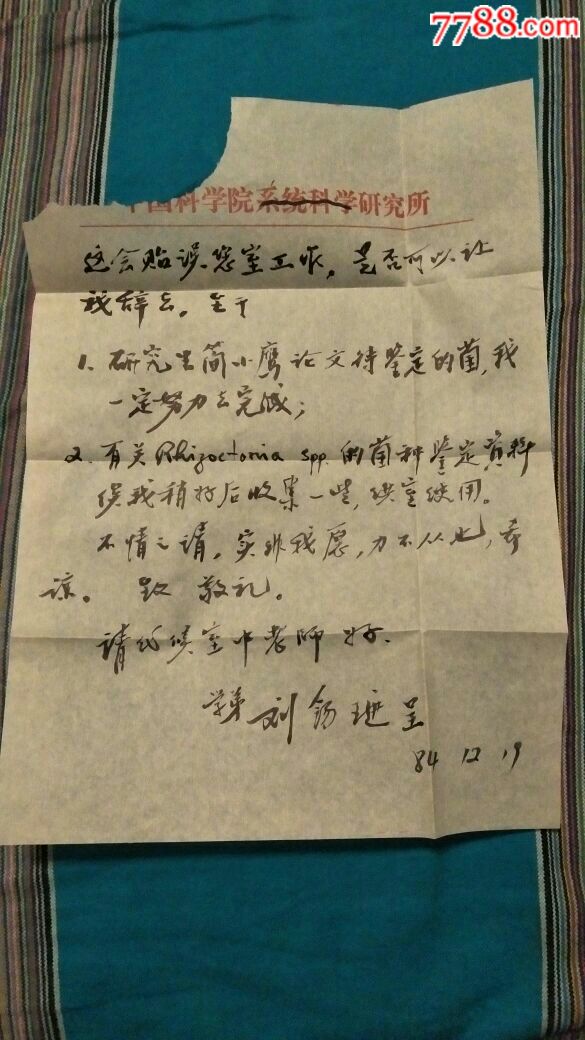 7788.com
中国科学院系统科学研究所
这会贻误您室工作，是否可以让
我辞去。至于
1. 研究生简小鹰论文待鉴定的菌，我
一定努力去完成；
2. 有关Rhizoctonia spp. 的菌种鉴定资料
俟我稍好后收集一些，供室使用。
不情之请，实非我愿，力不从也，希
谅。 致 敬礼。
请代候室中老师好.
学弟 刘锡琎 呈
84 12 19